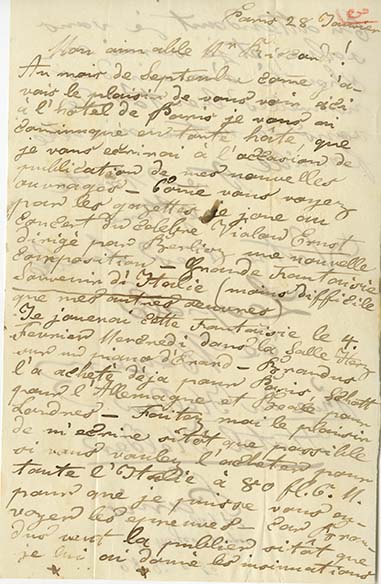 Paris 28 Janvier
Mon aimable Mr Ricordi!
Au mois de Septembre come j'a-
vais le plaisir de vous voir ici
à l'hôtel de Paris je vous ai
comunique en toute hâte, que
je vous ecrirai à l'occasion de
publication de mes nouvelles
ouvrages – Come vous voyez
par les gazettes je joue au
concert du celebre Ernst
dirigé par Berlioz une nouvelle
composition – Grande Fantaisie
Souvenir di Italie (moins difficile
que mes autres oeuvres)
Je jouerai cette Fantaisie le 4.
Fevrier Mercredi dans la Salle Herz
sur un piano d'Erard – Brandus
l'a acheté déja pour Paris, Schott
pour l'Allemagne et pour
Londres – Faites moi le plaisir
de m'ecrire sitôt que possible
si vous voulez l'acheter pour
toute l'Italie à 80 fl. C. M.
pour que je puisse vous en-
voyer les epreuves – Car Bran-
dus veut la publier sitôt que
je lui ai donné les